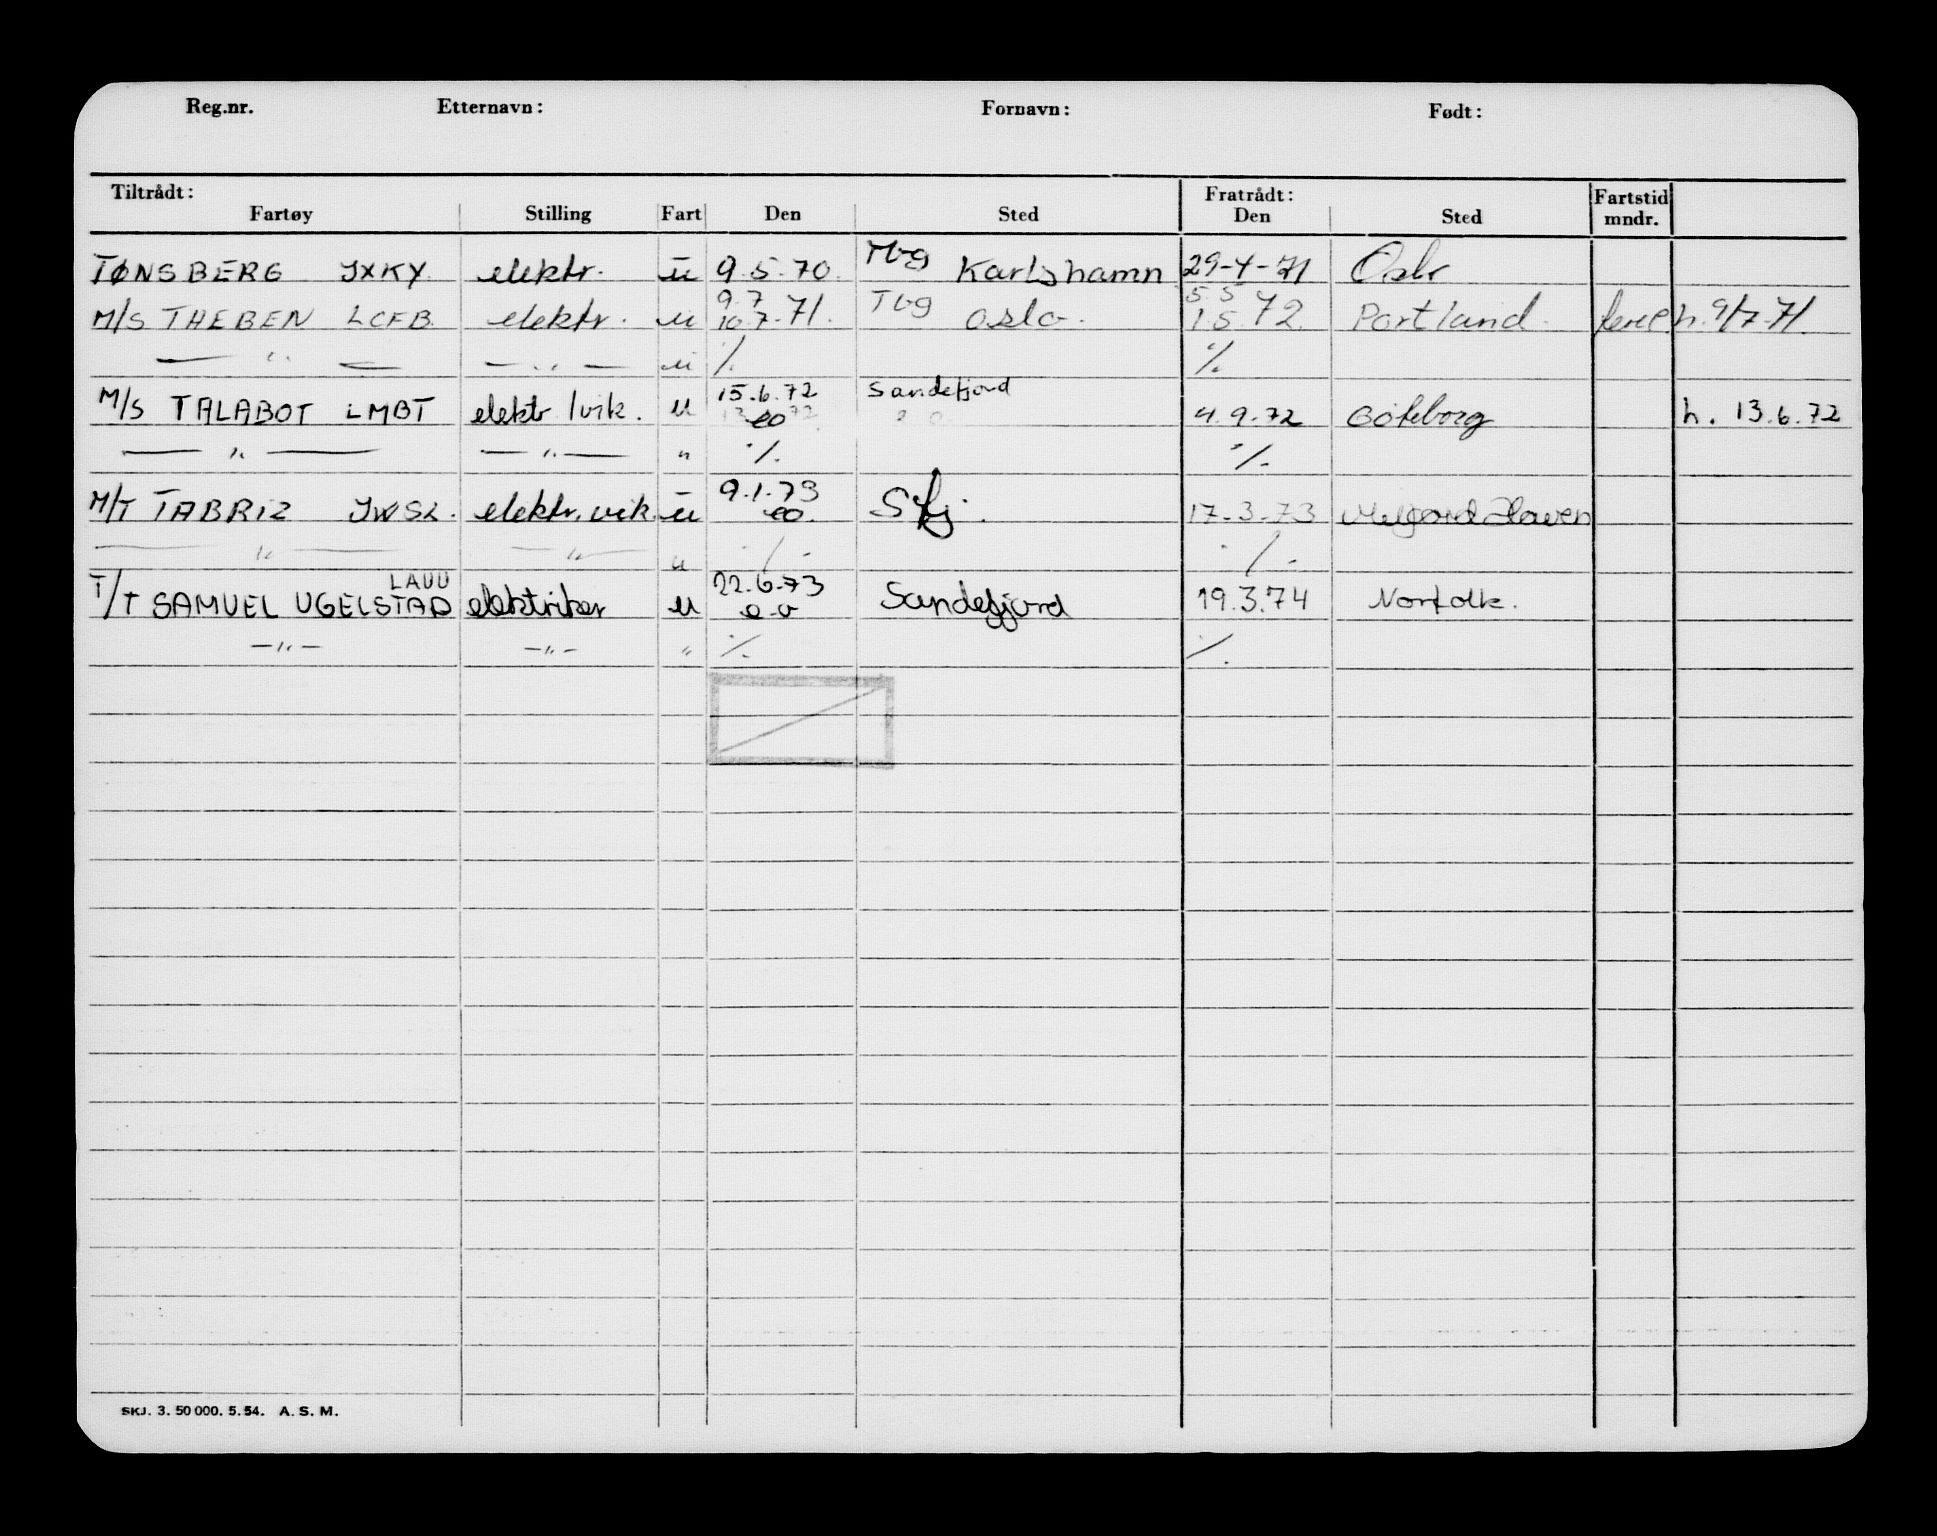 Reg.nr. Etternavn: Fornavn: Født:
Tiltrådt: Fratrådt: Fartstid
Fartøy Stilling Fart Den Sted Den Sted mndr.
TØNSBERG JXKY. elektr. u 9.5.70. Tbg Karlshamn 29-4-71 Oslo
9.7 5.5
M/S THEBEN LCFB. elektr. u 10.7.71. Tbg Oslo. 1.5.72. Portland. h. 9/7-71.
— " — — " — u ./. ./.
15.6.72 Sandefjord
M/S TALABOT LMBT elektr/vik. u eo 4.9.72 Göteborg h. 13.6.72
— " — — " — " ./. ./.
9.1.73
M/T TABRIZ JWSL. elektr.vik. u eo. Sfj. 17.3.73 Melford Haven
— " — — " — u ./. ./.
LAUU 22.6.73
T/T SAMUEL UGELSTAD elektriker u e-o Sandefjord 19.3.74 Norfolk.
— " — — " — " ./. ./.
SKJ. 3. 50 000. 5. 54. A. S. M.